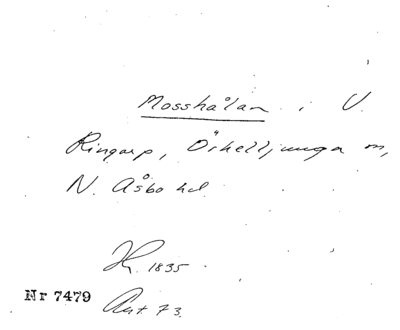 Mosshålan i V.
Ringarp, Örkelljunga m,
N. Åsbo hd
Hr. 1835
Nr 7479 Ant. 73.